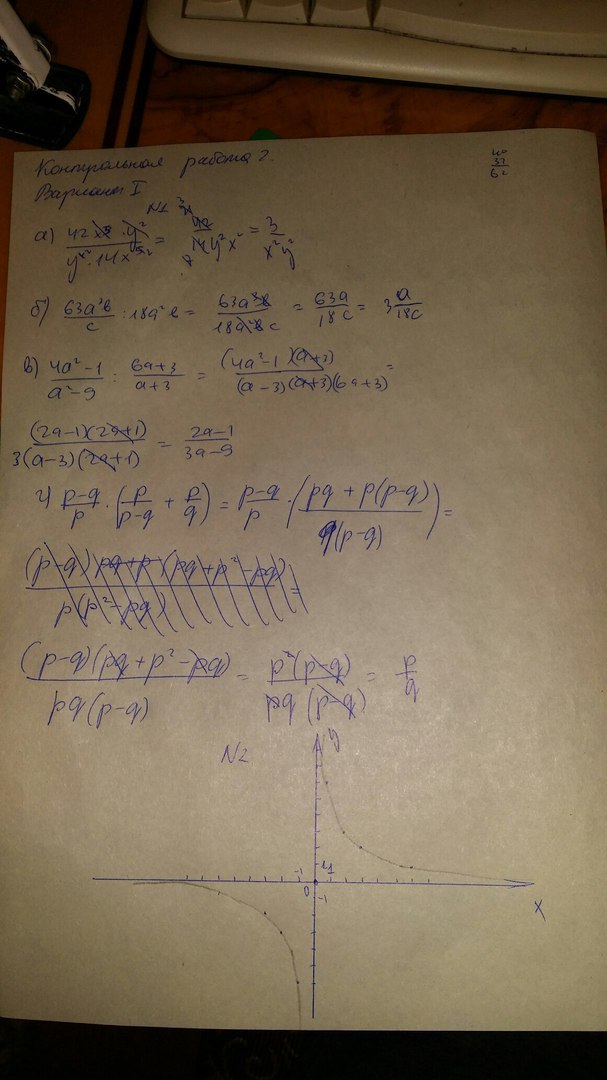 Контрольная работа 2.
40
32
62
Вариант I
N1
а) 42x³·y²/(y⁴·14x⁵) = 42/(14y²x²) = 3/(x²y²)
б) 63a³b/c : 18a²b = 63a³b/(18a²bc) = 63a/18c = 3 a/18c
в) (4a²-1)/(a²-9) : (6a+3)/(a+3) = (4a²-1)(a+3)/((a-3)(a+3)(6a+3)) =
(2a-1)(2a+1)/(3(a-3)(2a+1)) = (2a-1)/(3a-9)
г) (p-q)/p · (p/(p-q) + p/q) = (p-q)/p · ((pq + p(p-q))/(q(p-q))) =
(p-q)(pq+p²-pq)/(pq(p-q)) = p²(p-q)/(pq(p-q)) = p/q
N2
y
-1
1
0
-1
x